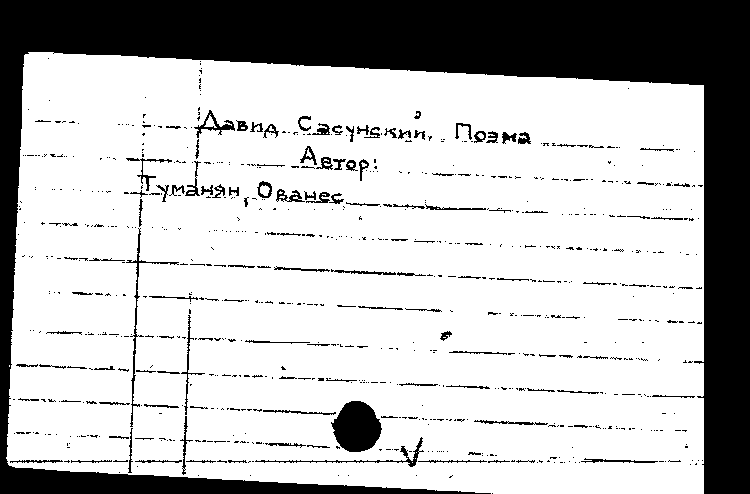 Давид Сасунский. Поэма
Автор:
Туманян, Ованес
V